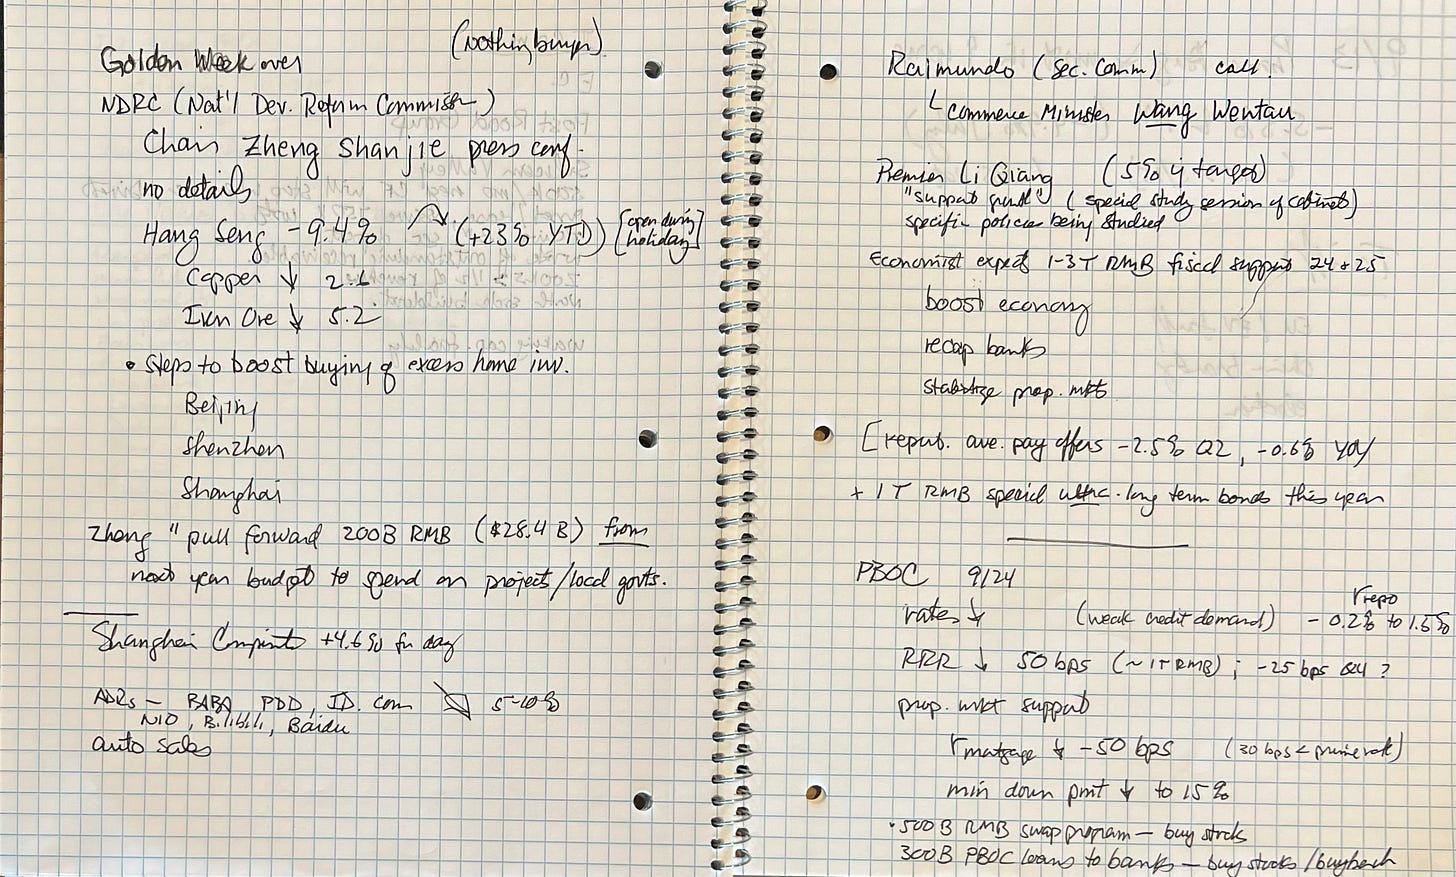 (nothingburger)
Golden Week over
NDRC (Nat'l Dev. Reform Commission)
Chair Zheng Shanjie press conf.
no details
Hang Seng -9.4% (+23% YTD) [open during holiday]
Copper ↓ 2.1
Iron Ore ↓ 5.2
• Steps to boost buying of excess home inv.
Beijing
Shenzhen
Shanghai
Zheng "pull forward 200B RMB ($28.4 B) from
next year budget to spend on project/local govts.
Shanghai Composite +4.6% for day
ADRs – BABA PDD, JD.com 5-10%
NIO, Bilibili, Baidu
auto sales
Raimundo (Sec. Comm) call.
Commerce Minister Wang Wentau
Premier Li Qiang (5% target)
"support growth" (special study session of cabinet)
specific policies being studied
Economist expect 1-3T RMB fiscal support 24+25
boost economy
recap banks
stabilize prop. mkt
[ave. pay offers -2.5% Q2, -0.6% YOY
+ 1T RMB special ultra-long term bonds this year
PBOC 9/24
rates ↓ (weak credit demand) r repo -0.2% to 1.5%
RRR ↓ 50 bps (~1T RMB); -25 bps Q4?
prop. mkt support
r mortgage ↓ -50 bps (30 bps < prime rate)
min down pmt ↓ to 15%
• 500B RMB swap program – buy stocks
300B PBOC loans to banks – buy stocks/buyback